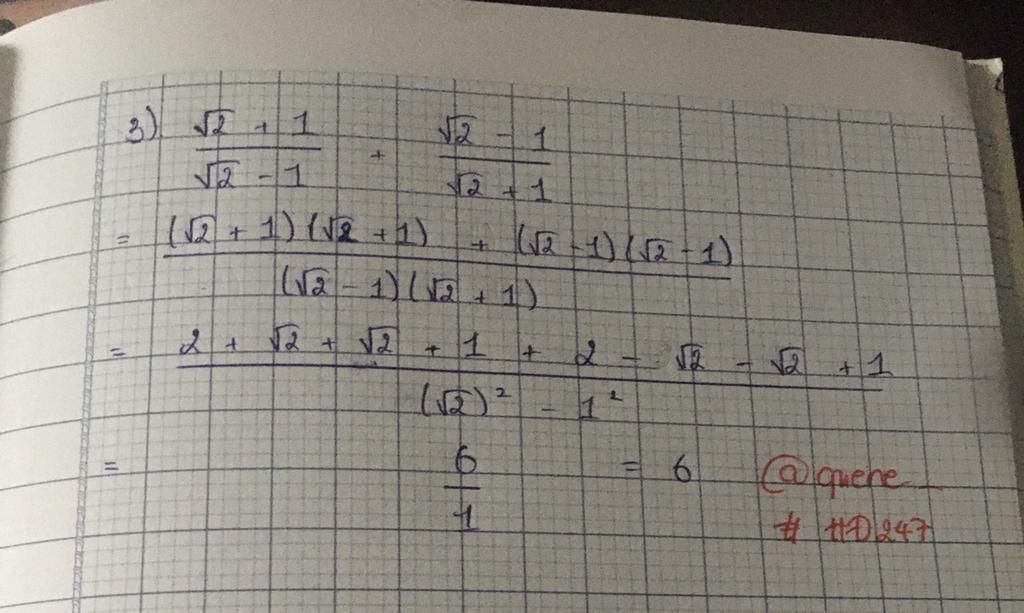 3) (√2 + 1)/(√2 - 1) + (√2 - 1)/(√2 + 1)
= ((√2 + 1)(√2 + 1) + (√2 - 1)(√2 - 1))/((√2 - 1)(√2 + 1))
= (2 + √2 + √2 + 1 + 2 - √2 - √2 + 1)/((√2)² - 1²)
= 6/1 = 6
@quene_
# HD247